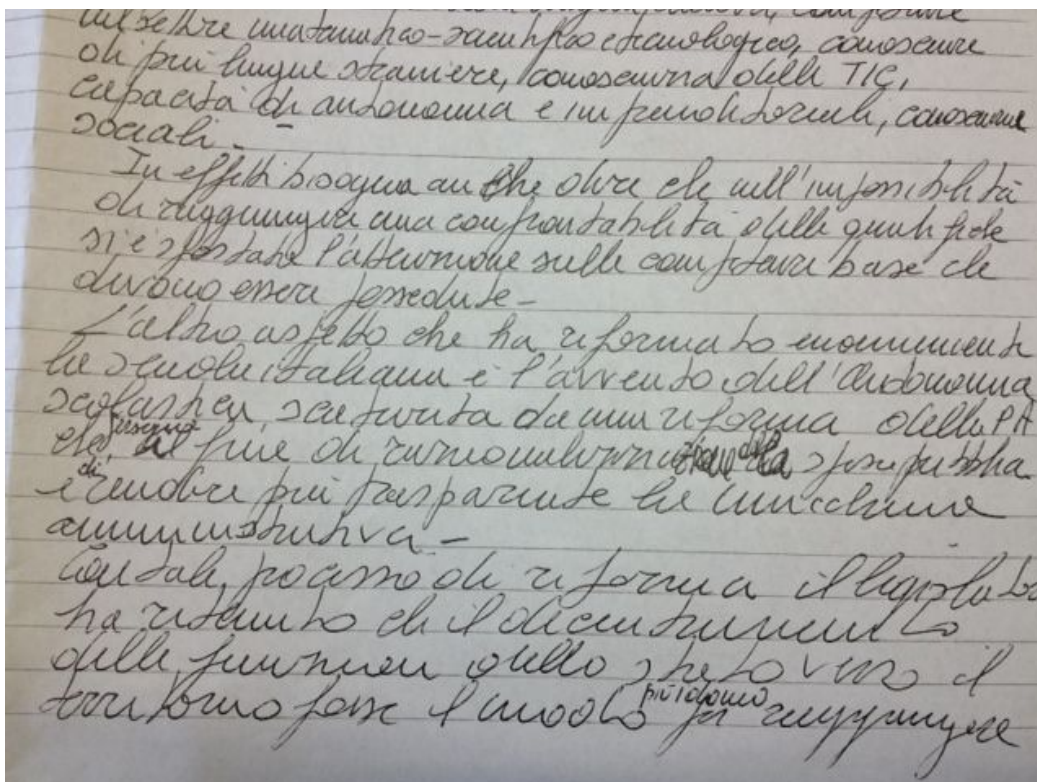 nel settore matematico-scientifico e tecnologico, conoscenze
di più lingue straniere, conoscenza delle TIC,
capacità di autonomia e imprenditoriali, conoscenze
sociali -
In effetti bisogna anche dire che nell'impossibilità
di raggiungere una confrontabilità delle qualifiche
si è spostata l'attenzione sulle competenze base che
devono essere possedute -
L'altro aspetto che ha riformato enormemente
la scuola italiana è l'avvento dell'Autonomia
scolastica, scaturita da una riforma della PA
al fine di spesa pubblica
e di rendere più trasparente la macchina
amministrativa -
Con tale processo di riforma il legislatore
ha ritenuto che il decentramento
delle funzioni dello stato verso il
territorio fosse il modo più idoneo per raggiungere